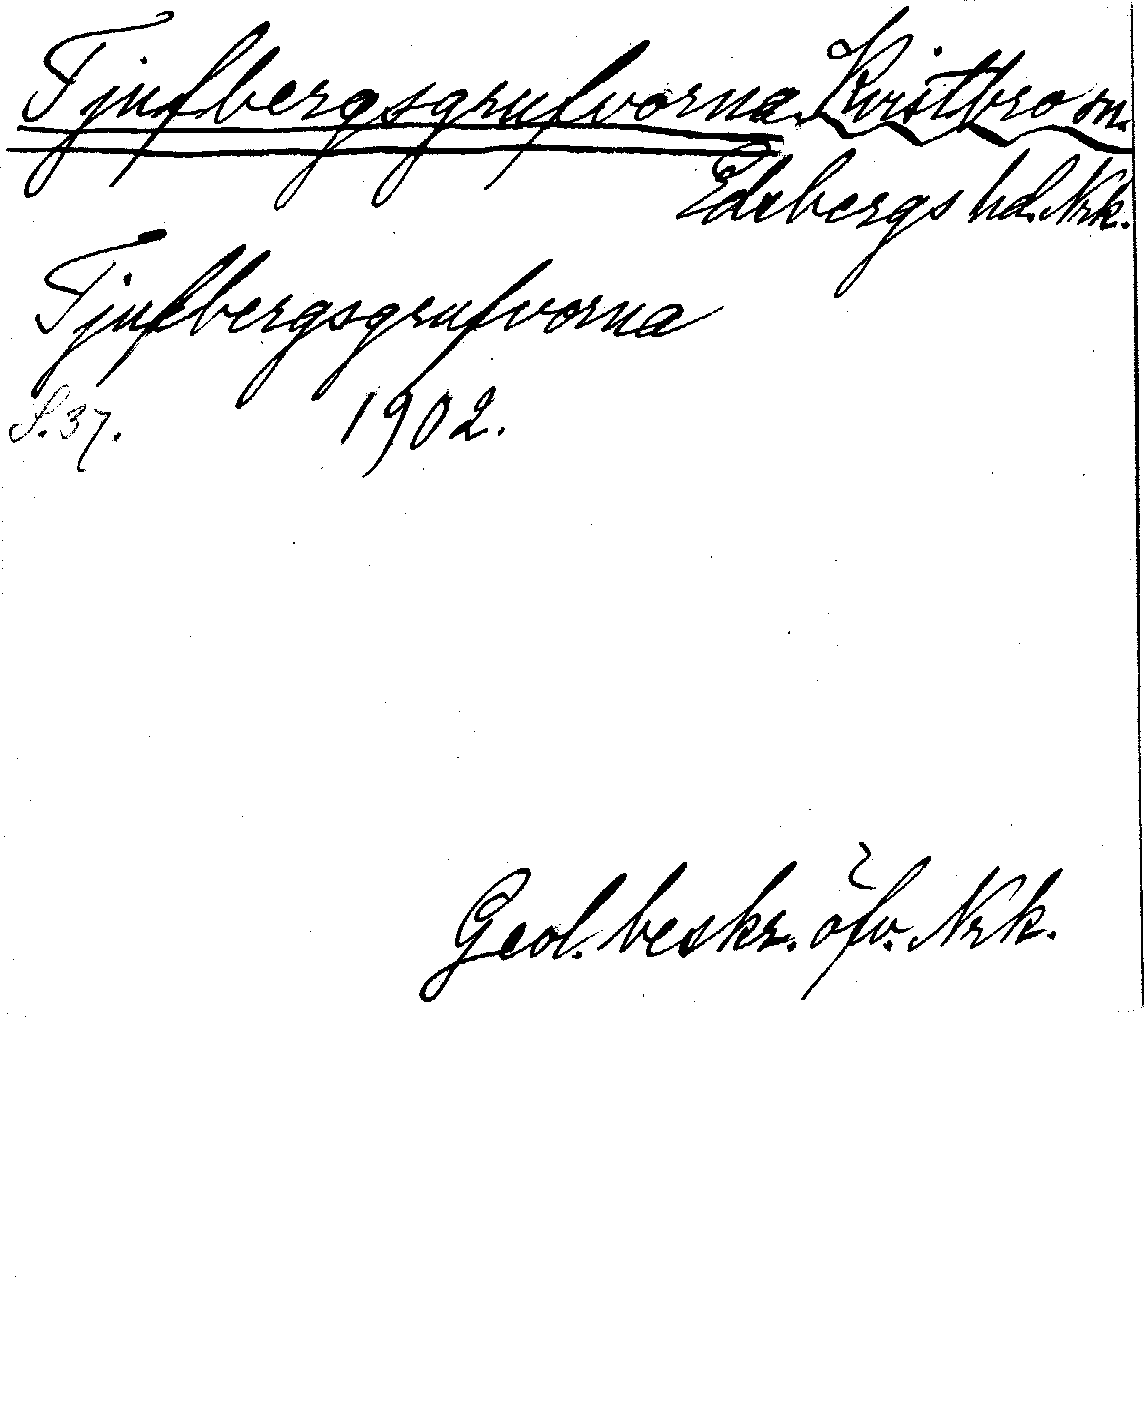 Tjufbergsgrufvorna. Kvistbro sn.
Edsbergs hd. Nrk.
Tjufbergsgrufvorna
S. 37. 1902.
Geol. beskr. öfv. Nrk.